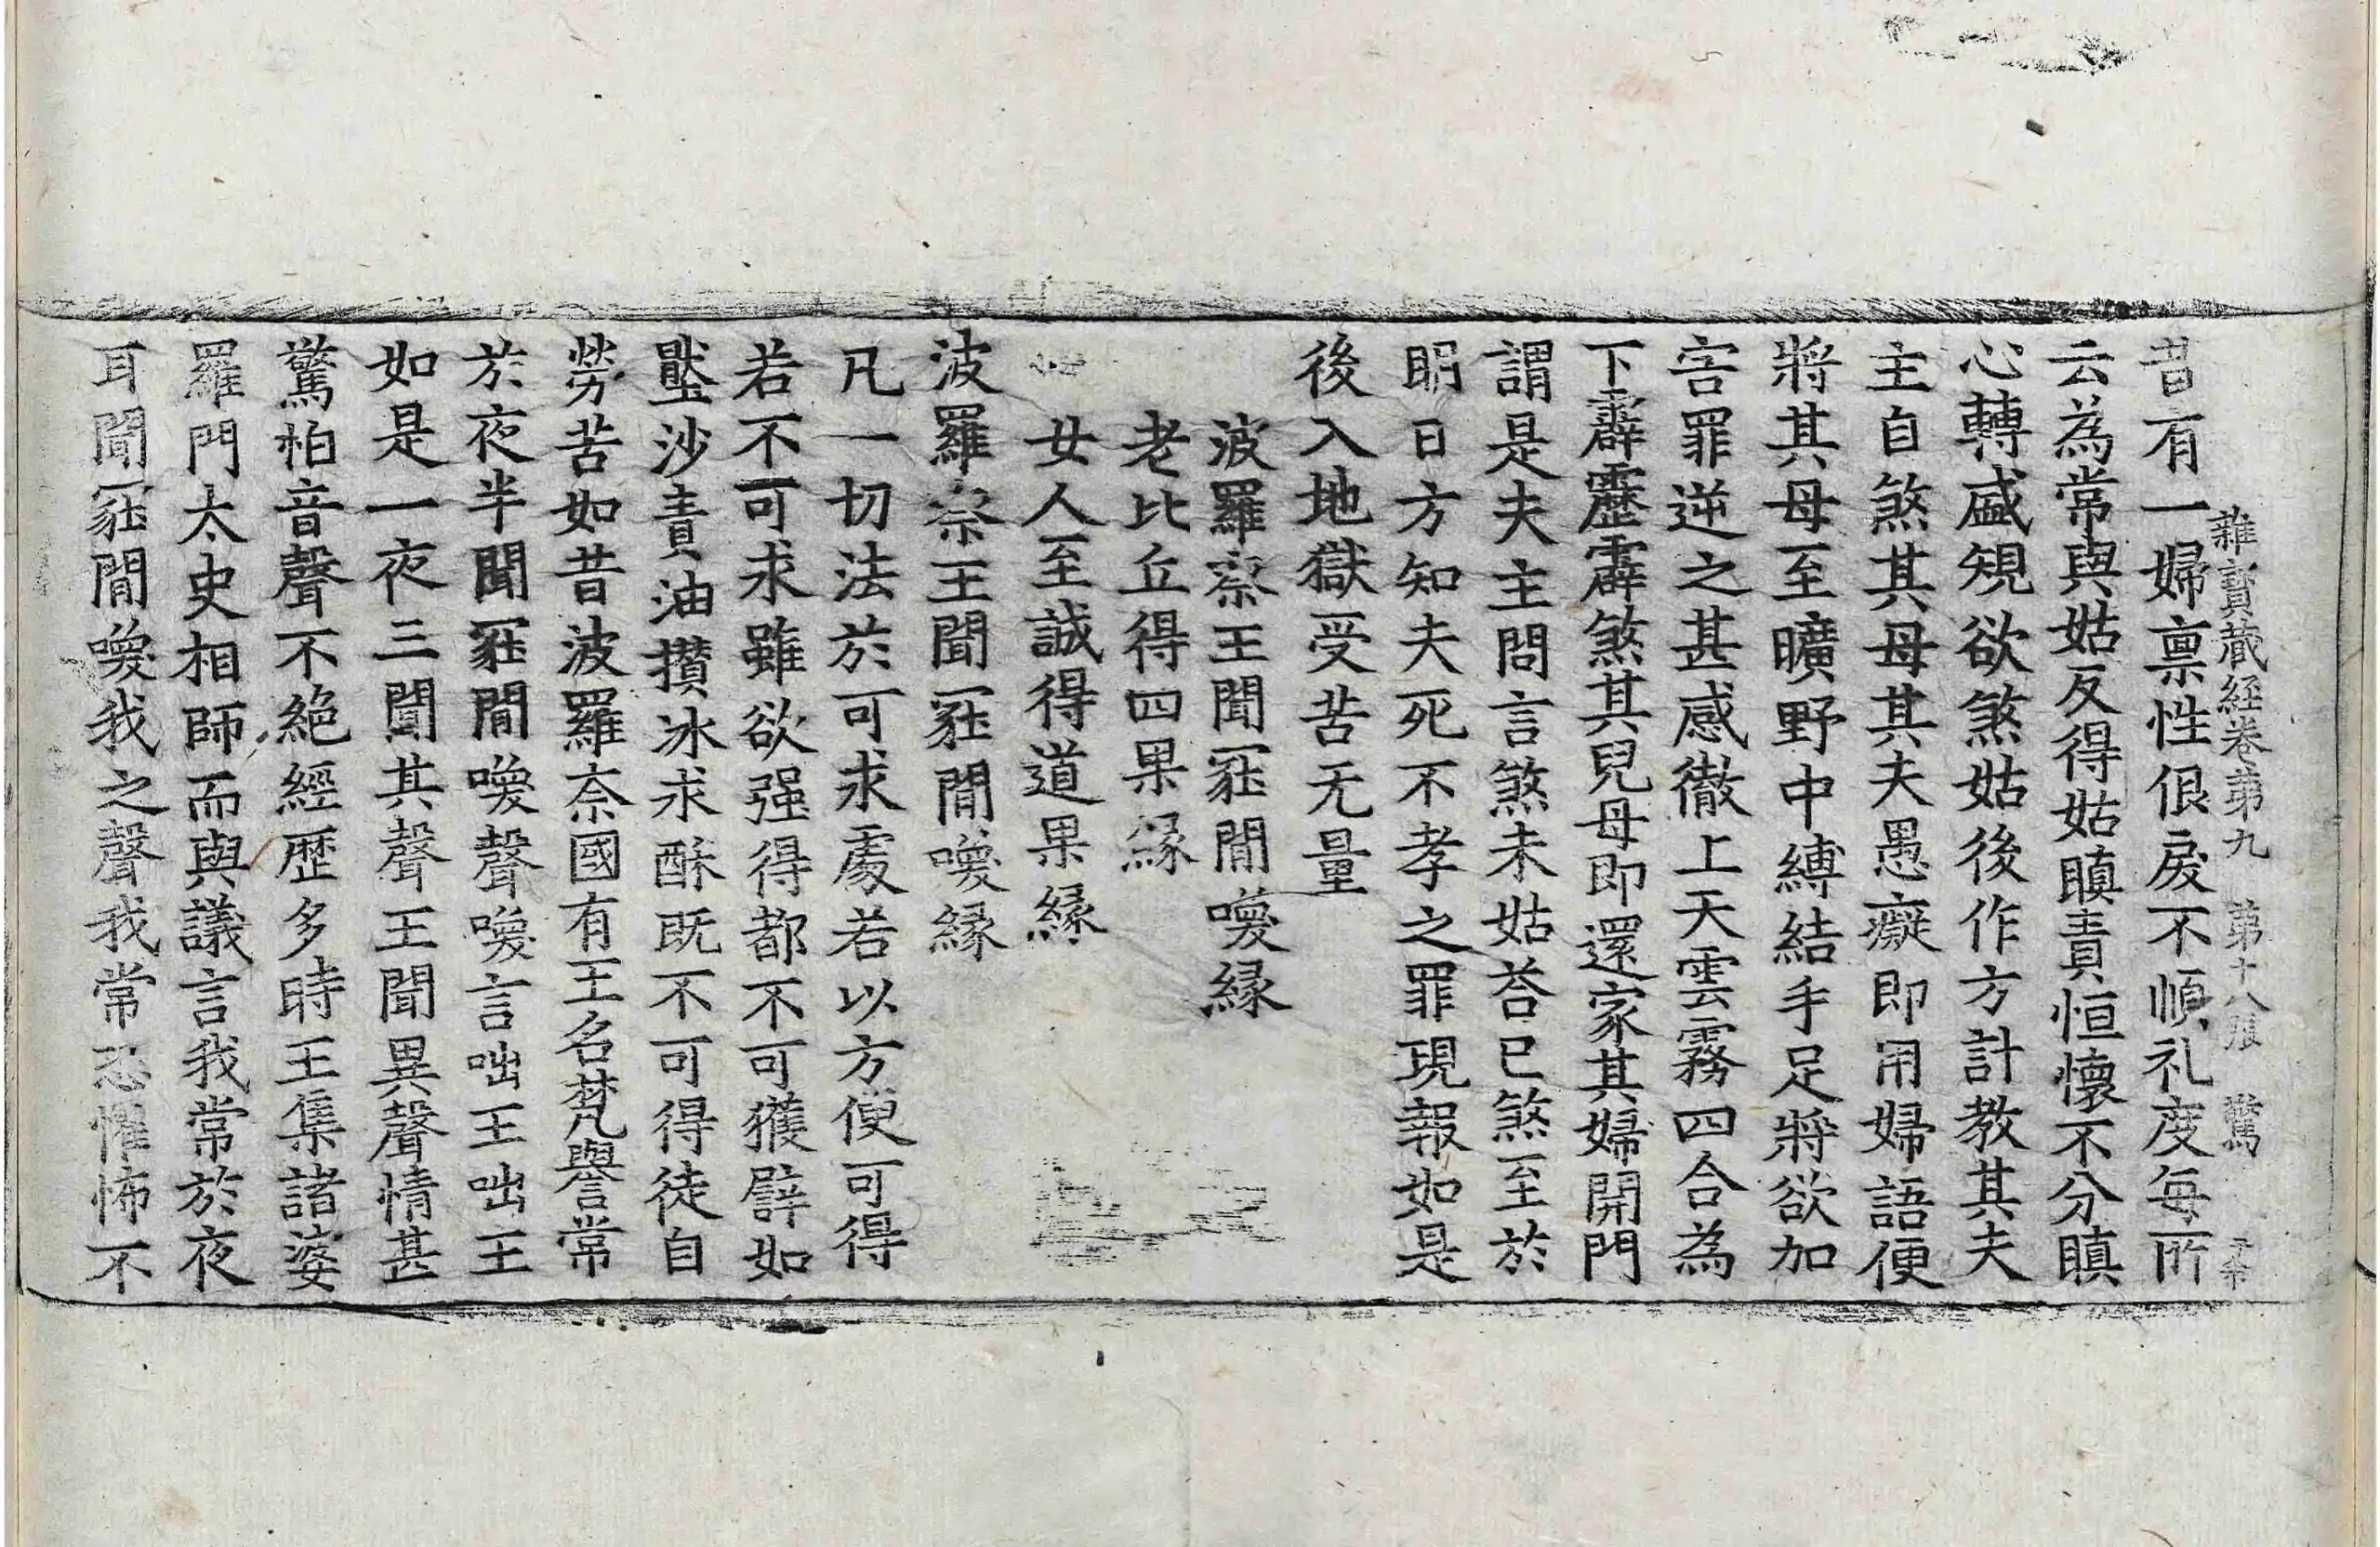 雜寶藏經卷第九 第十八張 驚
昔有一婦禀性佷戾不順礼度每所
云為常與姑反得姑瞋責恒懷不分瞋
心轉盛規欲煞姑後作方計教其夫
主自煞其母其夫愚癡即用婦語便
將其母至曠野中縛結手足將欲加
害罪逆之甚感徹上天雲霧四合為
下霹靂霹煞其兒母即還家其婦開門
謂是夫主問言煞未姑荅已煞至於
明日方知夫死不孝之罪現報如是
後入地獄受苦无量
波羅㮈王聞冢間喚縁
老比丘得四果縁
女人至誠得道果縁
波羅㮈王聞冢間喚縁
凡一切法於可求處若以方便可得
若不可求雖欲强得都不可獲譬如
壓沙責油攢冰求酥既不可得徒自
勞苦如昔波羅奈國有王名梵譽常
於夜半聞冢間喚聲喚言咄王咄王
如是一夜三聞其聲王聞異聲情甚
驚怕音聲不絕經歷多時王集諸婆
羅門太史相師而與議言我常於夜
耳聞冢間喚我之聲我常恐懼怖不